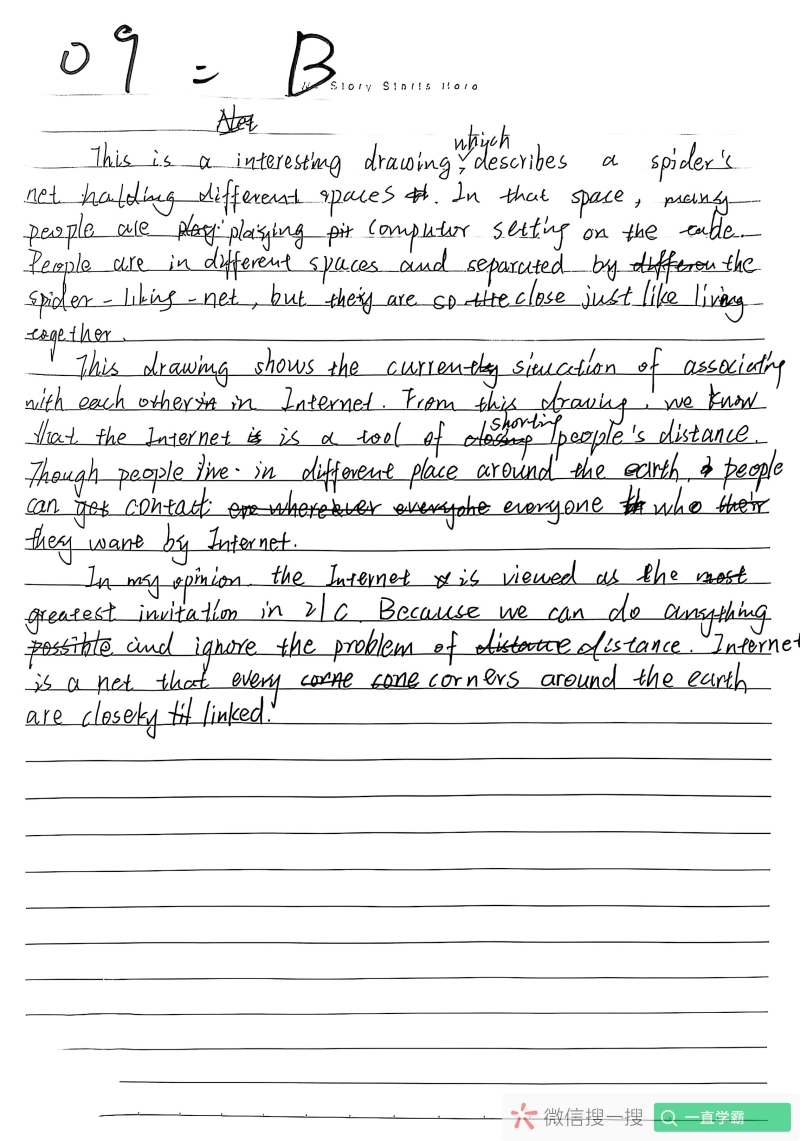 09 = B
Story Starts Here
This is a interesting drawing, which describes a spider's
net halding different spaces. In that space, many
people are playing computor setting on the table.
People are in different spaces and separated by the
spider-liking-net, but they are so close just like living
together.
This drawing shows the current situation of associating
with each other in Internet. From this drawing, we know
that the Internet is a tool of shorting people's distance.
Though people live in different place around the earth, people
can get contact everyone who
they want by Internet.
In my opinion the Internet is viewed as the
greatest invitation in 21C. Because we can do anything
and ignore the problem of distance. Internet
is a net that every corners around the earth
are closely linked.
微信搜一搜 一直学霸